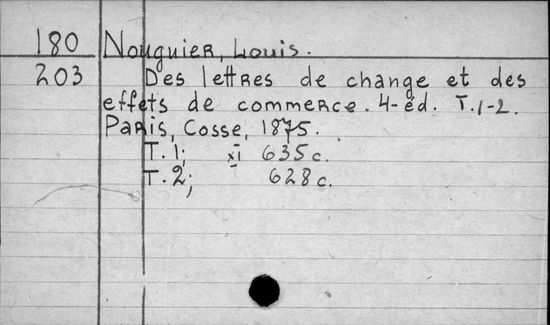 180 Nouguier, Louis.
203 Des lettres de change et des
effets de commerce. 4-éd. T.1-2.
Paris, Cosse, 1875.
T.1; XI 635 c.
T.2; 628 c.